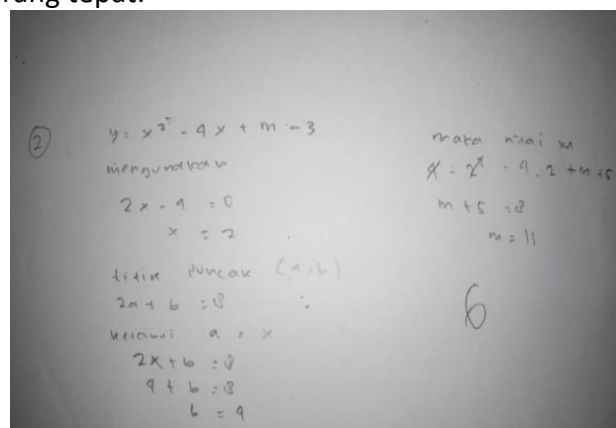 rang tepat.
②
y = x² - 4x + m - 3
mengunakan
2x - 4 = 0
x = 2
titik puncak (a,b)
2a + b = 8
a = x
2x + b = 8
4 + b = 8
b = 4
maka nilai m
4 = 2² - 4.2 + m + 5
m + 5 = 8
m = 11
6